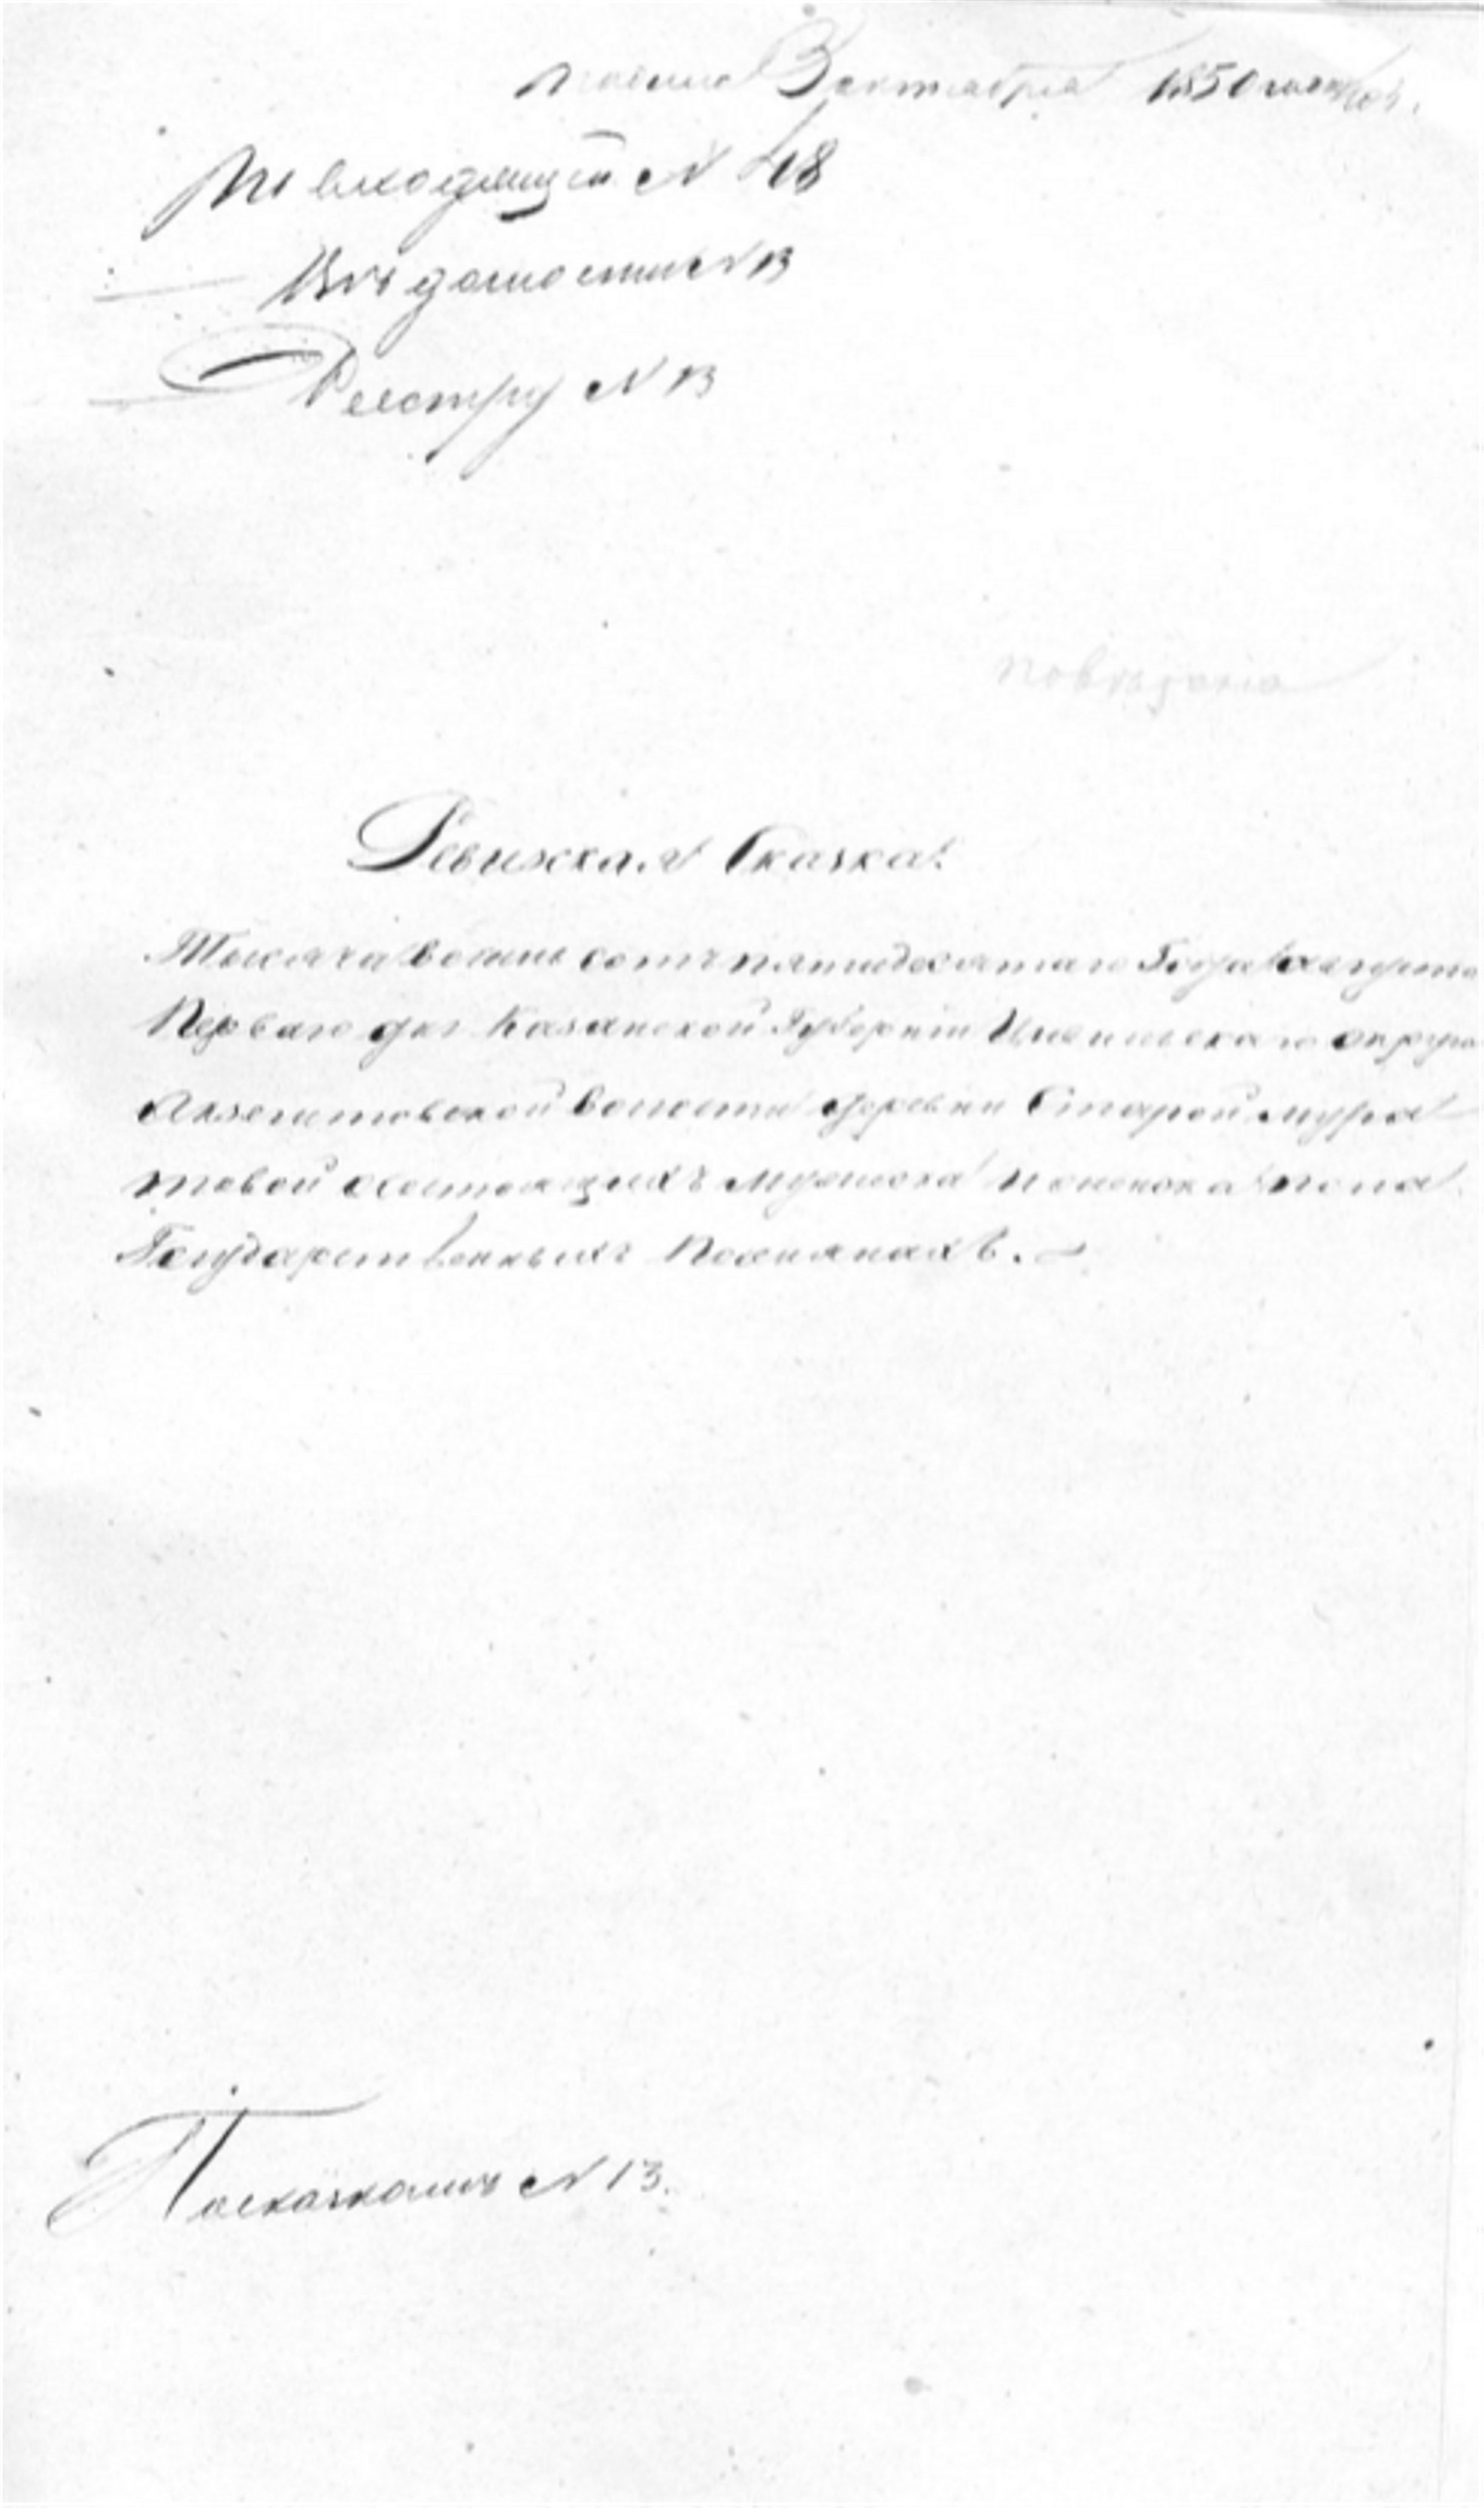 3 октября 1850 года
По входящей N 48
Ведомости N 13
Реестру N 13
Ревижская Сказка.
Тысяча восемь сотъ пятидесятаго Года августа
Перваго дня Казанской Губерніи Цивильскаго округа
Акзегитовской волости деревни Старой мура
товой состоящихъ мужеска и женска пола
Государственныхъ Поселянахъ.
По сказкамъ N 13.